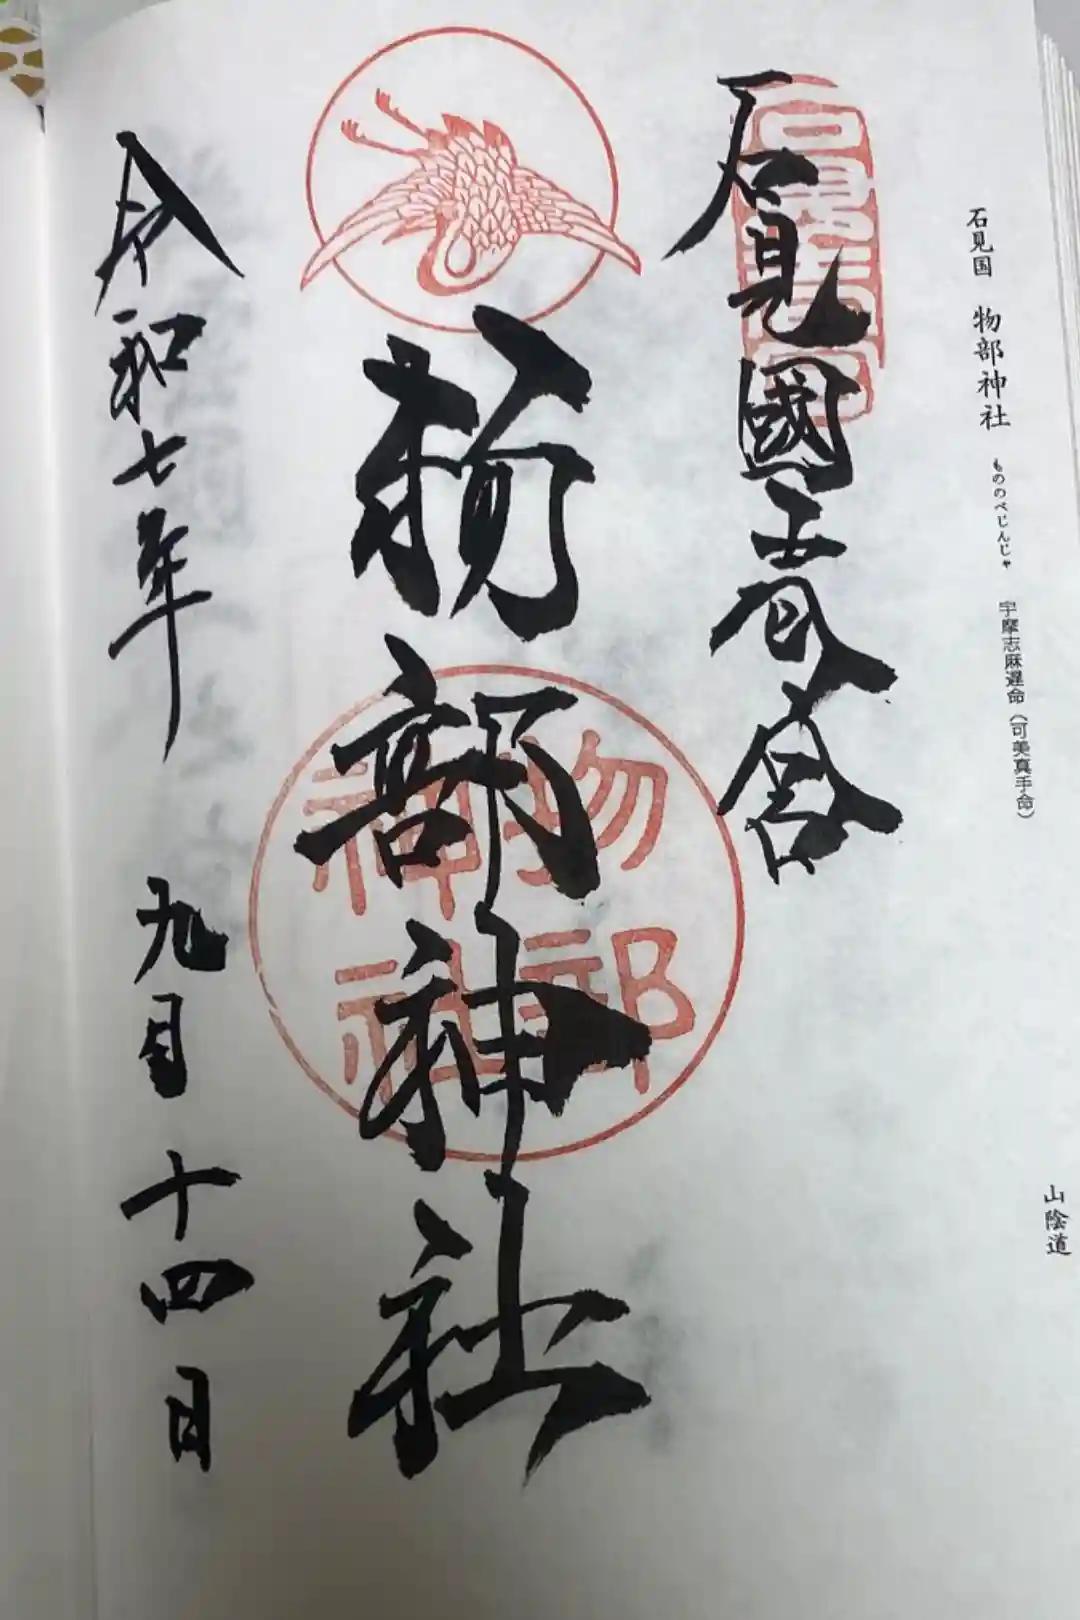 石見国 物部神社 もののべじんじゃ 宇摩志麻遲命（可美真手命）
山陰道
石見國
物部神社
物部
神社
令和七年 九月十四日